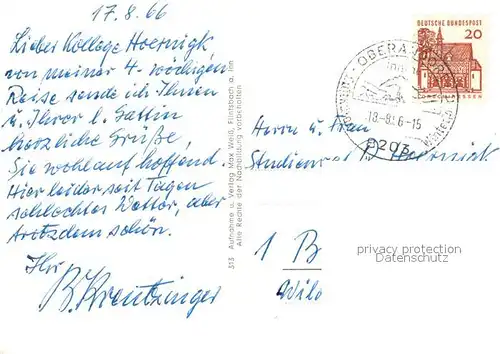 17.8.66
Lieber Kollege Hoernigk,
von meiner 4-wöchigen
Reise sende ich Ihnen
u. Ihrer l. Gattin
herzliche Grüße,
Sie wohlauf hoffend.
Hier leider seit Tagen
schlechtes Wetter, aber
trotzdem schön.
Ihr
B. Kreutzinger
313 Aufnahme u. Verlag Max Weiß, Flintsbach a. Inn
Alle Rechte der Nachbildung vorbehalten
DEUTSCHE BUNDESPOST
20
18.-8.6-15
8203
Herrn u. Frau
Studienrat Hoernigk
1 B
privacy protection
Datenschutz